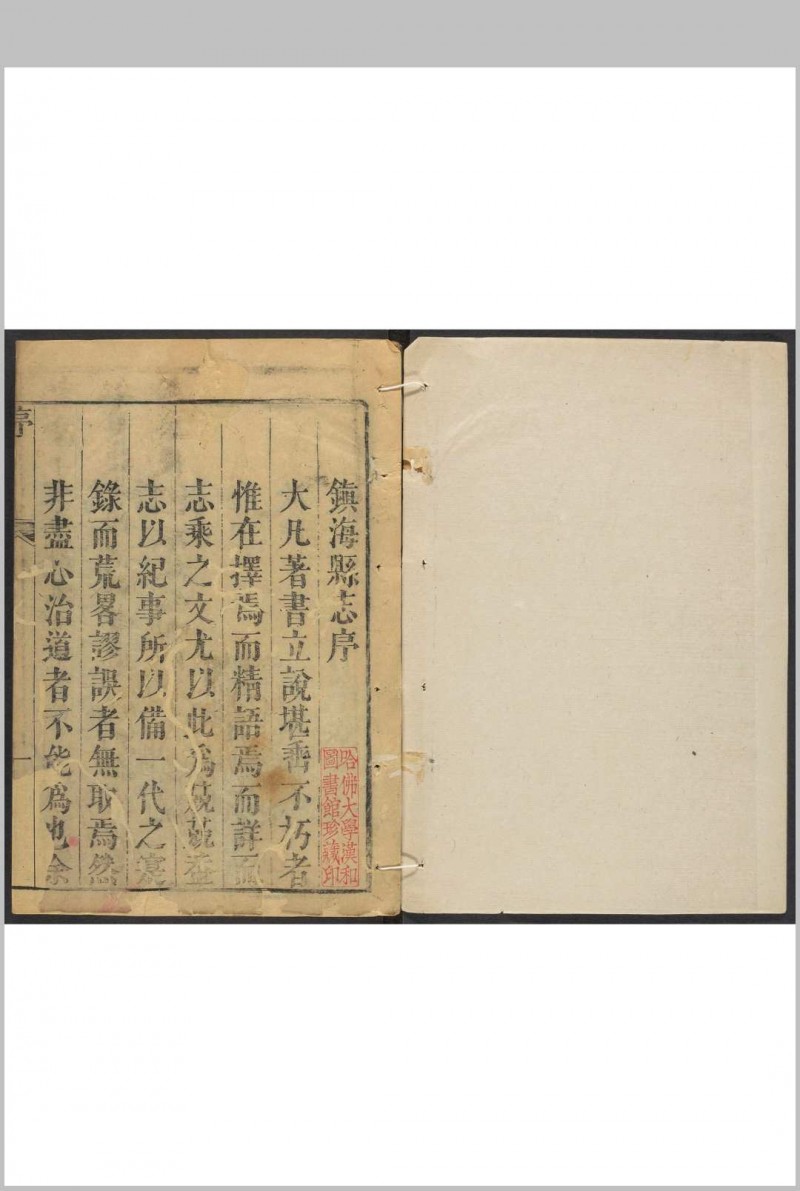 鎮海縣志序
大凡著書立說堪垂不朽者
惟在擇焉而精語焉而詳而
志乘之文尤以此爲兢兢蓋
志以紀事所以備一代之實
錄而荒畧謬誤者無取焉然
非盡心治道者不能爲也余
序
一
哈佛大學漢和
圖書館珍藏印